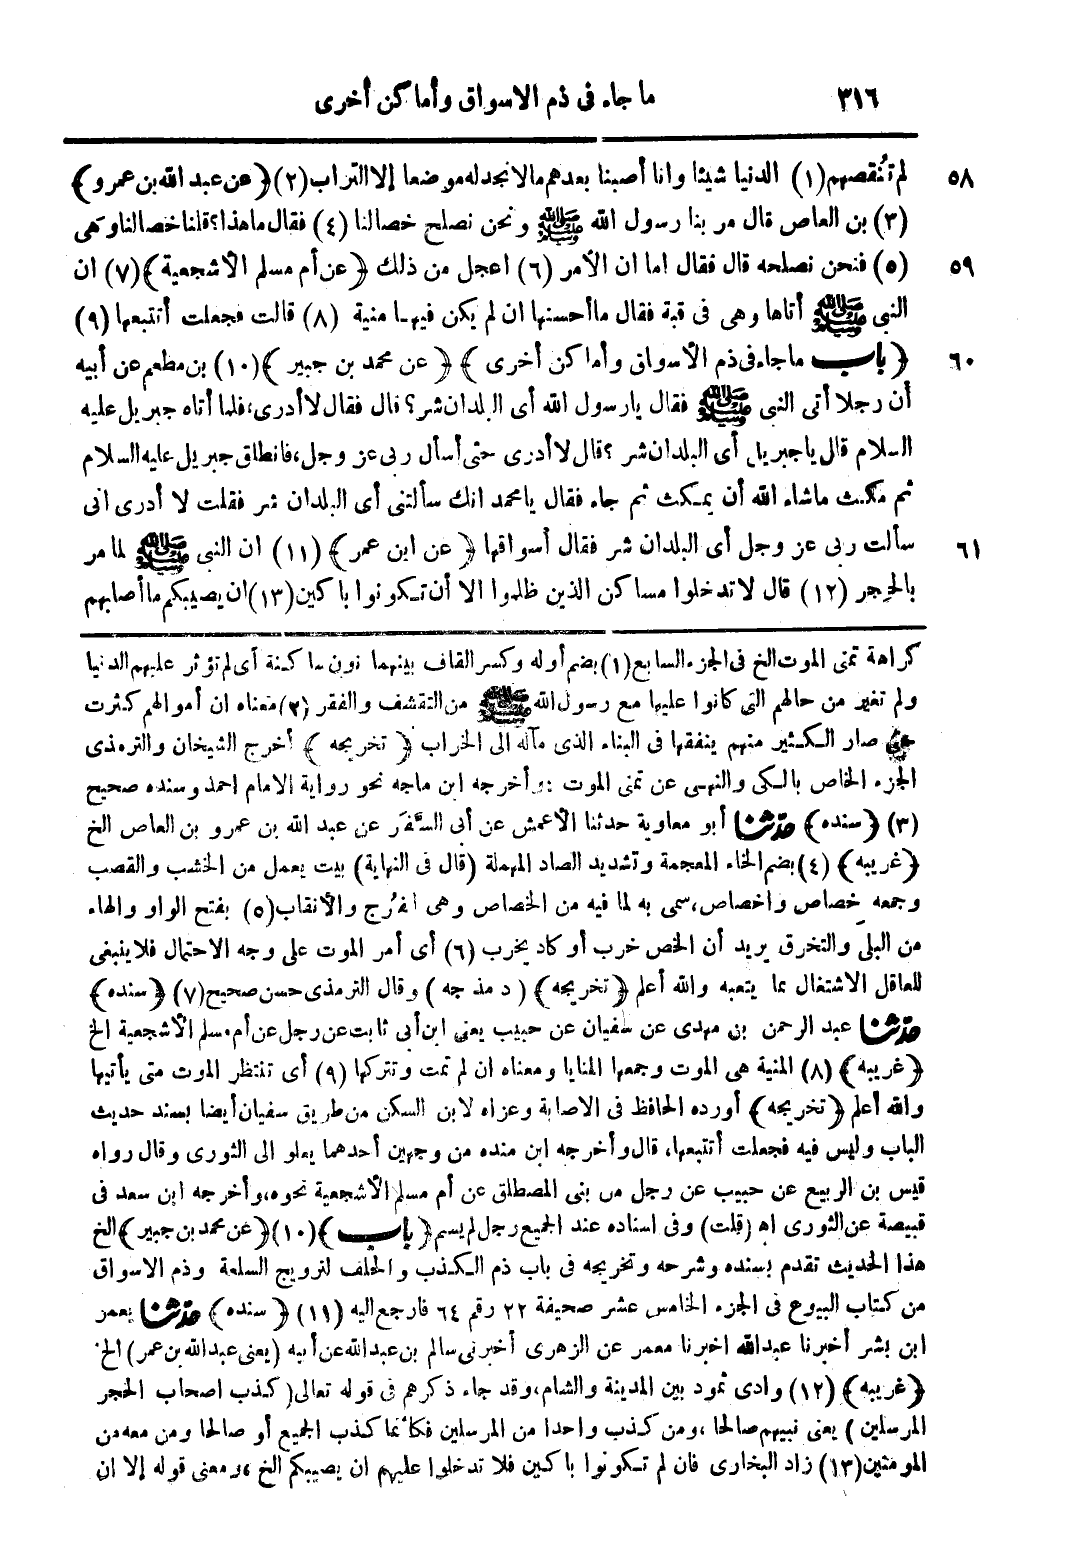 ٣١٦ ما جاء فى ذم الاسواق وأماكن أخرى
٥٨ لم تنُقصهم (١) الدنيا شيئا وانا أصبنا بعدهم مالا نجد له موضعا إلا التراب (٢) ﴿ عن عبد الله بن عمرو ﴾
(٣) بن العاص قال مر بنا رسول الله ﷺ ونحن نصلح خصالنا (٤) فقال ما هذا؟ قلنا خصالنا وهَى
٥٩ (٥) فنحن نصلحه قال فقال اما ان الأمر (٦) اعجل من ذلك ﴿ عن أم مسلم الأشجعية ﴾ (٧) ان
النبى ﷺ أتاها وهى فى قبة فقال ما أحسنها ان لم يكن فيها منية (٨) قالت فجعلت أتتبعها (٩)
٦٠ ﴿ باب ما جاء فى ذم الأسواق وأماكن أخرى ﴾ ﴿ عن محمد بن جبير ﴾ (١٠) بن مطعم عن أبيه
أن رجلا أتى النبى ﷺ فقال يا رسول الله أى البلدان شر؟ قال فقال لا أدرى، فلما أتاه جبريل عليه
السلام قال يا جبريل أى البلدان شر؟ قال لا أدرى حتى أسأل ربى عز وجل، فانطلق جبريل عليه السلام
ثم مكث ما شاء الله أن يمكث ثم جاء فقال يا محمد انك سألتنى أى البلدان شر فقلت لا أدرى انى
٦١ سألت ربى عز وجل أى البلدان شر فقال أسواقها ﴿ عن ابن عمر ﴾ (١١) ان النبى ﷺ لما مر
بالحِجر (١٢) قال لا تدخلوا مساكن الذين ظلموا الا أن تكونوا باكين (١٣) ان يصيبكم ما أصابهم
كراهة تمنى الموت الخ فى الجزء السابع (١) بضم أوله وكسر القاف بينهما نون ساكنة أى لم تؤثر عليهم الدنيا
ولم تغير من حالهم التى كانوا عليها مع رسول الله ﷺ من التقشف والفقر (٢) معناه ان أموالهم كثرت
حتى صار الكثير منهم ينفقها فى البناء الذى مآله الى الخراب ﴿ تخريجه ﴾ أخرج الشيخان والترمذى
الجزء الخاص بالكى والنهى عن تمنى الموت : وأخرجه ابن ماجه نحو رواية الامام احمد وسنده صحيح
(٣) ﴿ سنده ﴾ حدثنا أبو معاوية حدثنا الأعمش عن أبى السَّفَر عن عبد الله بن عمرو بن العاص الخ
﴿ غريبه ﴾ (٤) بضم الخاء المعجمة وتشديد الصاد المهملة (قال فى النهاية) بيت يعمل من الخشب والقصب
وجمعه خِصاص واخصاص، سمى به لما فيه من الخصاص وهى الفُرج والأنقاب (٥) بفتح الواو والهاء
من البلى والتخرق يريد أن الخص خرب أو كاد يخرب (٦) أى أمر الموت على وجه الاحتمال فلا ينبغى
للعاقل الاشتغال بما يتعبه والله أعلم ﴿ تخريجه ﴾ ( د مذ جه ) وقال الترمذى حسن صحيح (٧) ﴿ سنده ﴾
حدثنا عبد الرحمن بن مهدى عن سفيان عن حبيب يعنى ابن أبى ثابت عن رجل عن أم مسلم الأشجعية الخ
﴿ غريبه ﴾ (٨) المنية هى الموت وجمعها المنايا ومعناه ان لم تمت وتتركها (٩) أى تنتظر الموت متى يأتيها
والله أعلم ﴿ تخريجه ﴾ أورده الحافظ فى الاصابة وعزاه لابن السكن من طريق سفيان أيضا بسند حديث
الباب وليس فيه فجعلت أتتبعها، قال وأخرجه ابن منده من وجهين أحدهما يعلو الى الثورى وقال رواه
قيس بن الربيع عن حبيب عن رجل من بنى المصطلق عن أم مسلم الأشجعية نحوه، وأخرجه ابن سعد فى
قبيصة عن الثورى اه (قلت) وفى اسناده عند الجميع رجل لم يسم ﴿ باب ﴾ (١٠) ﴿ عن محمد بن جبير ﴾ الخ
هذا الحديث تقدم بسنده وشرحه وتخريجه فى باب ذم الكذب والحلف لترويج السلعة وذم الاسواق
من كتاب البيوع فى الجزء الخامس عشر صحيفة ٢٢ رقم ٦٤ فارجع اليه (١١) ﴿ سنده ﴾ حدثنا يعمر
ابن بشر أخبرنا عبدالله اخبرنا معمر عن الزهرى أخبرنى سالم بن عبدالله عن أبيه (يعنى عبدالله بن عمر) الخ
﴿ غريبه ﴾ (١٢) وادى ثمود بين المدينة والشام، وقد جاء ذكرهم فى قوله تعالى ( كذب اصحاب الحجر
المرسلين ) يعنى نبيهم صالحا، ومن كذب واحدا من المرسلين فكأنما كذب الجميع أو صالحا ومن معه من
المؤمنين (١٣) زاد البخارى فان لم تكونوا باكين فلا تدخلوا عليهم ان يصيبكم الخ، ومعنى قوله إلا ان